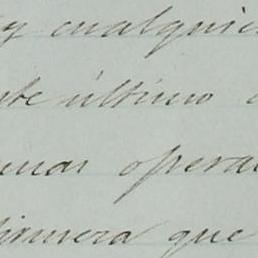 y cualquie
te último
nas opera
rimera que